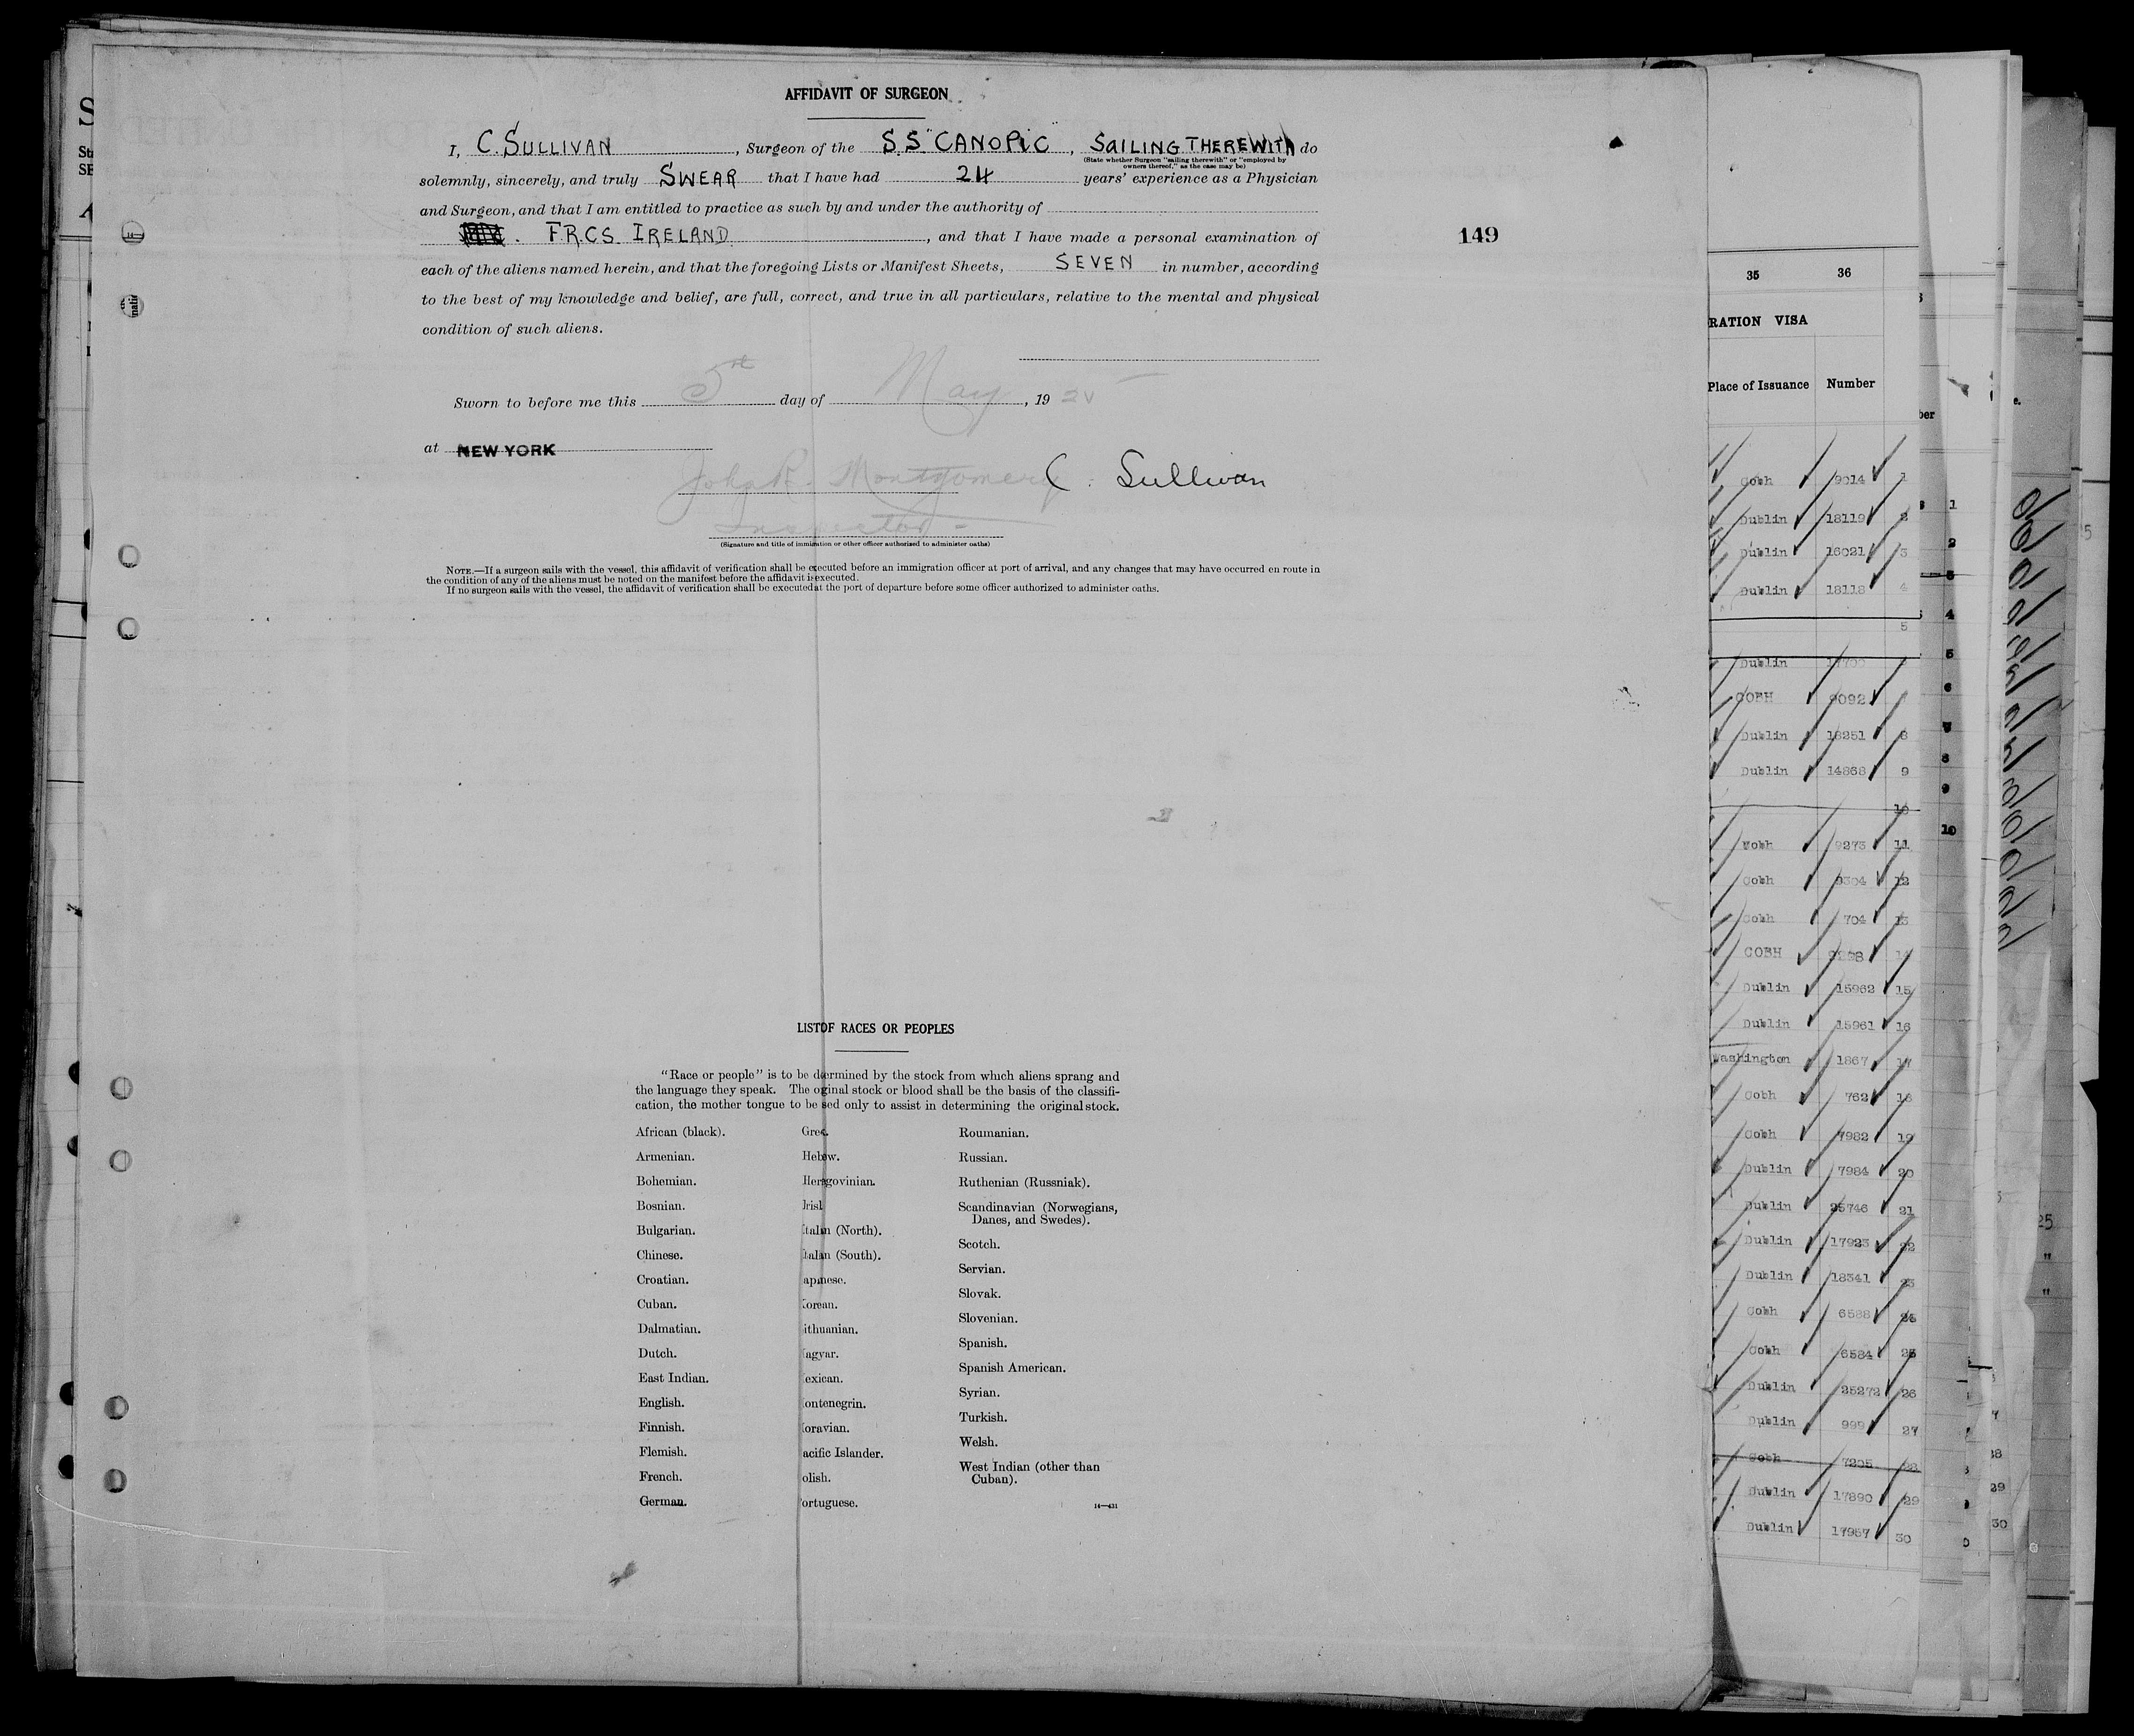 AFFIDAVIT OF SURGEON
I, C. SULLIVAN, Surgeon of the S.S. "CANOPIC", SAILING THEREWITH do
(State whether Surgeon "sailing therewith" or "employed by
owners thereof," as the case may be)
solemnly, sincerely, and truly SWEAR that I have had 24 years' experience as a Physician
and Surgeon, and that I am entitled to practice as such by and under the authority of
F.R.C.S. IRELAND, and that I have made a personal examination of
149
each of the aliens named herein, and that the foregoing Lists or Manifest Sheets, SEVEN in number, according
to the best of my knowledge and belief, are full, correct, and true in all particulars, relative to the mental and physical
condition of such aliens.
Sworn to before me this 5th day of May, 19
at NEW YORK
John R. Montgomery C. Sullivan
Inspector
(Signature and title of immigration or other officer authorized to administer oaths)
NOTE.—If a surgeon sails with the vessel, this affidavit of verification shall be executed before an immigration officer at port of arrival, and any changes that may have occurred en route in
the condition of any of the aliens must be noted on the manifest before the affidavit is executed.
If no surgeon sails with the vessel, the affidavit of verification shall be executed at the port of departure before some officer authorized to administer oaths.
LIST OF RACES OR PEOPLES
"Race or people" is to be dermined by the stock from which aliens sprang and
the language they speak. The oginal stock or blood shall be the basis of the classifi-
cation, the mother tongue to be sed only to assist in determining the original stock.
African (black).
Armenian.
Bohemian.
Bosnian.
Bulgarian.
Chinese.
Croatian.
Cuban.
Dalmatian.
Dutch.
East Indian.
English.
Finnish.
Flemish.
French.
German.
Gree.
Hebw.
Hergovinian.
Irisl
Italin (North).
Italin (South).
apnese.
orean.
ithuanian.
agyar.
exican.
ontenegrin.
oravian.
acific Islander.
olish.
ortuguese.
Roumanian.
Russian.
Ruthenian (Russniak).
Scandinavian (Norwegians,
Danes, and Swedes).
Scotch.
Servian.
Slovak.
Slovenian.
Spanish.
Spanish American.
Syrian.
Turkish.
Welsh.
West Indian (other than
Cuban).
14—431
35 36
RATION VISA
Place of Issuance Number
Cobh 9014 1
Dublin 18119 2
Dublin 16021 3
Dublin 18118 4
5
Dublin
COBH 9092
Dublin 18251 8
Dublin 14868 9
10
Cobh 9273 11
Cobh 9304 12
Cobh 704 13
COBH 14
Dublin 15962 15
Dublin 15961 16
Washington 1867 17
Cobh 762 18
Cobh 7982 19
Dublin 7984 20
Dublin 25746 21
Dublin 17923 22
Dublin 18341 23
Cobh 6588 24
Cobh 6584 25
Dublin 25272 26
Dublin 999 27
Cobh 7205 28
Dublin 17890 29
Dublin 17957 30